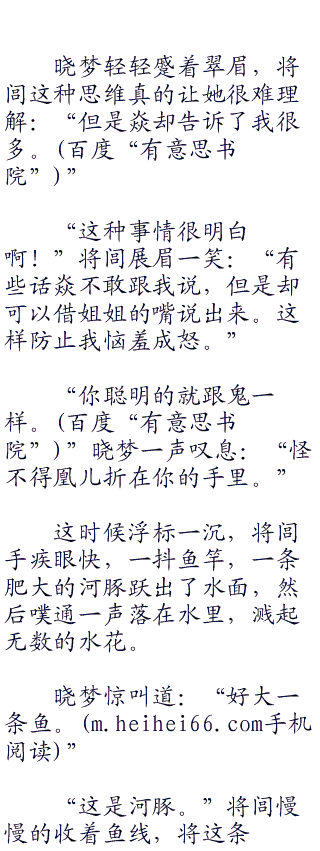 晓梦轻轻蹙着翠眉，将
闾这种思维真的让她很难理
解：“但是焱却告诉了我很
多。(百度“有意思书
院”)”
“这种事情很明白
啊！”将闾展眉一笑：“有
些话焱不敢跟我说，但是却
可以借姐姐的嘴说出来。这
样防止我恼羞成怒。”
“你聪明的就跟鬼一
样。(百度“有意思书
院”)”晓梦一声叹息：“怪
不得凰儿折在你的手里。”
这时候浮标一沉，将闾
手疾眼快，一抖鱼竿，一条
肥大的河豚跃出了水面，然
后噗通一声落在水里，溅起
无数的水花。
晓梦惊叫道：“好大一
条鱼。(m.heihei66.com手机
阅读)”
“这是河豚。”将闾慢
慢的收着鱼线，将这条